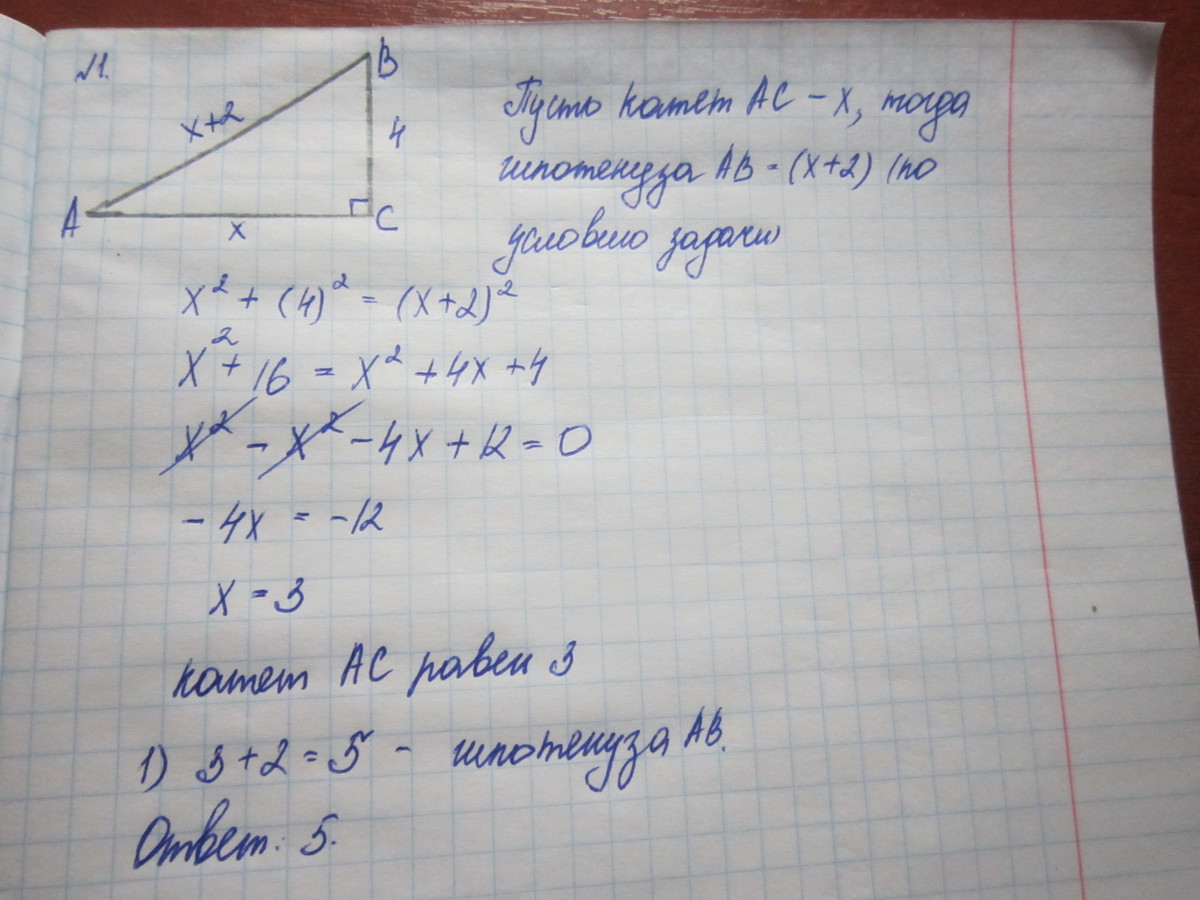 √1.
B
x+2
4
A
x
C
Пусть катет AC - x, тогда
гипотенуза AB - (x+2) (по
условию задачи)
x² + (4)² = (x+2)²
x² + 16 = x² + 4x + 4
x² - x² - 4x + 12 = 0
- 4x = -12
x = 3
катет AC равен 3
1) 3 + 2 = 5 - гипотенуза AB.
Ответ: 5.